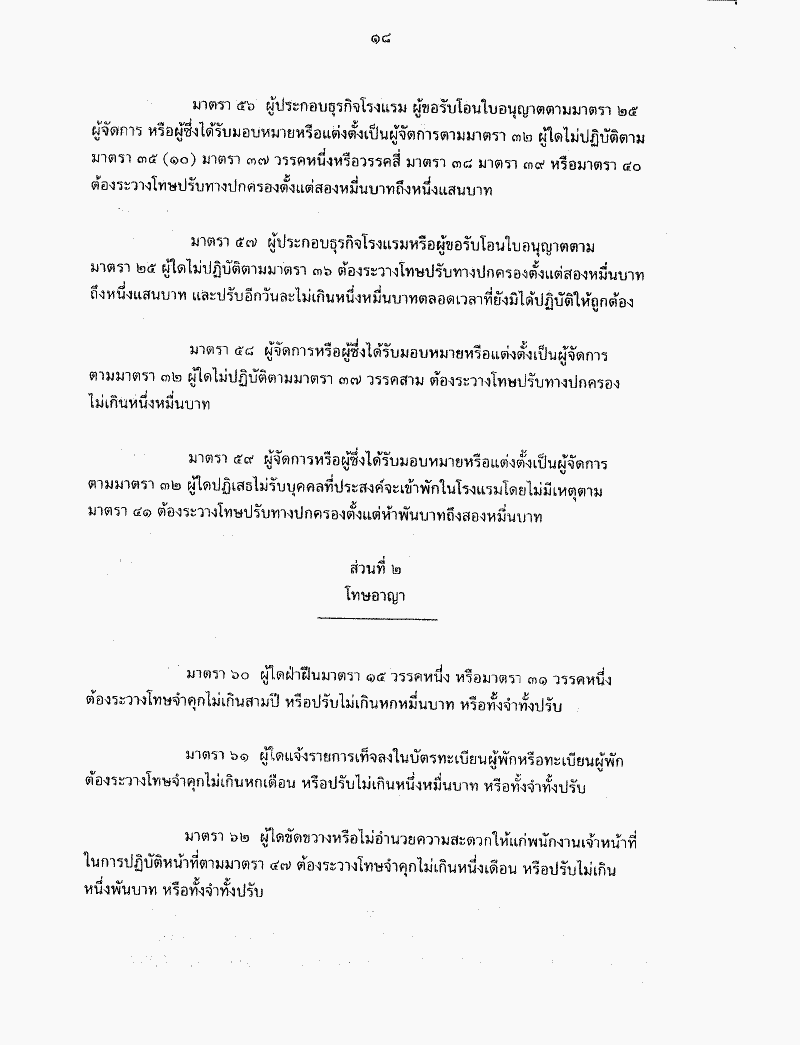 ๑๘
มาตรา ๕๖ ผู้ประกอบธุรกิจโรงแรม ผู้ขอรับโอนใบอนุญาตตามมาตรา ๒๕
ผู้จัดการ หรือผู้ซึ่งได้รับมอบหมายหรือแต่งตั้งเป็นผู้จัดการตามมาตรา ๓๒ ผู้ใดไม่ปฏิบัติตาม
มาตรา ๓๕ (๑๐) มาตรา ๓๗ วรรคหนึ่งหรือวรรคสี่ มาตรา ๓๘ มาตรา ๓๙ หรือมาตรา ๔๐
ต้องระวางโทษปรับทางปกครองตั้งแต่สองหมื่นบาทถึงหนึ่งแสนบาท
มาตรา ๕๗ ผู้ประกอบธุรกิจโรงแรมหรือผู้ขอรับโอนใบอนุญาตตาม
มาตรา ๒๕ ผู้ใดไม่ปฏิบัติตามมาตรา ๓๖ ต้องระวางโทษปรับทางปกครองตั้งแต่สองหมื่นบาท
ถึงหนึ่งแสนบาท และปรับอีกวันละไม่เกินหนึ่งหมื่นบาทตลอดเวลาที่ยังมิได้ปฏิบัติให้ถูกต้อง
มาตรา ๕๘ ผู้จัดการหรือผู้ซึ่งได้รับมอบหมายหรือแต่งตั้งเป็นผู้จัดการ
ตามมาตรา ๓๒ ผู้ใดไม่ปฏิบัติตามมาตรา ๓๗ วรรคสาม ต้องระวางโทษปรับทางปกครอง
ไม่เกินหนึ่งหมื่นบาท
มาตรา ๕๙ ผู้จัดการหรือผู้ซึ่งได้รับมอบหมายหรือแต่งตั้งเป็นผู้จัดการ
ตามมาตรา ๓๒ ผู้ใดปฏิเสธไม่รับบุคคลที่ประสงค์จะเข้าพักในโรงแรมโดยไม่มีเหตุตาม
มาตรา ๔๑ ต้องระวางโทษปรับทางปกครองตั้งแต่ห้าพันบาทถึงสองหมื่นบาท
ส่วนที่ ๒
โทษอาญา
มาตรา ๖๐ ผู้ใดฝ่าฝืนมาตรา ๑๕ วรรคหนึ่ง หรือมาตรา ๓๑ วรรคหนึ่ง
ต้องระวางโทษจำคุกไม่เกินสามปี หรือปรับไม่เกินหกหมื่นบาท หรือทั้งจำทั้งปรับ
มาตรา ๖๑ ผู้ใดแจ้งรายการเท็จลงในบัตรทะเบียนผู้พักหรือทะเบียนผู้พัก
ต้องระวางโทษจำคุกไม่เกินหกเดือน หรือปรับไม่เกินหนึ่งหมื่นบาท หรือทั้งจำทั้งปรับ
มาตรา ๖๒ ผู้ใดขัดขวางหรือไม่อำนวยความสะดวกให้แก่พนักงานเจ้าหน้าที่
ในการปฏิบัติหน้าที่ตามมาตรา ๔๗ ต้องระวางโทษจำคุกไม่เกินหนึ่งเดือน หรือปรับไม่เกิน
หนึ่งพันบาท หรือทั้งจำทั้งปรับ